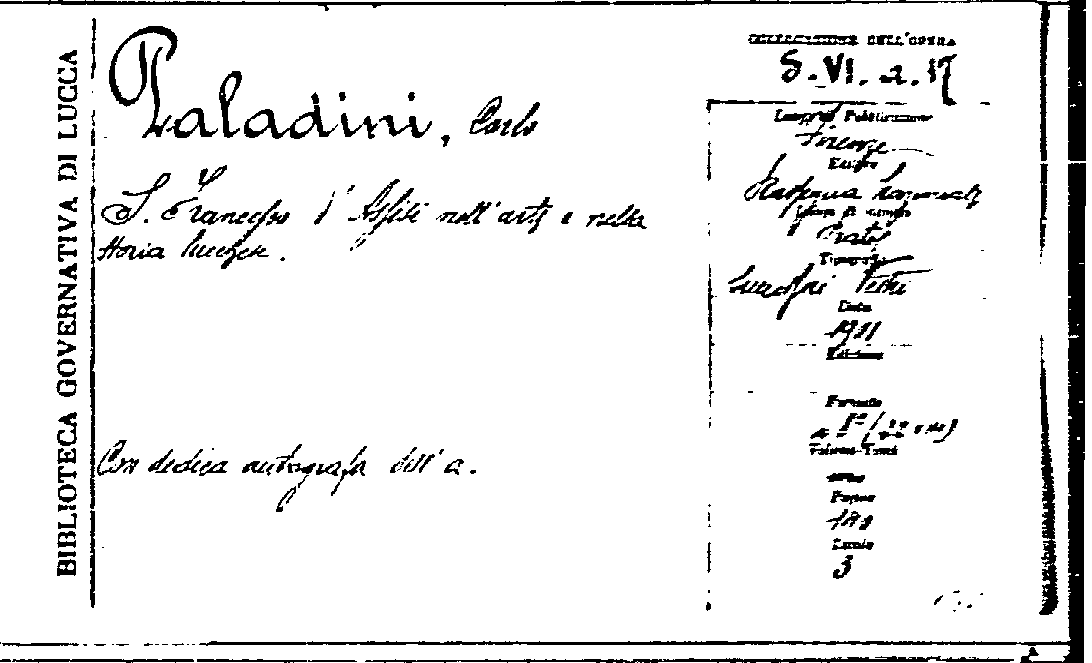 BIBLIOTECA GOVERNATIVA DI LUCCA
Paladini, Carlo
S. Francesco d'Assisi nell'arte e nella
storia lucchese.
Con dedica autografa dell'a.
COLLOCAZIONE DELL'OPERA
Luogo di Pubblicazione
Firenze
Editore
Luogo di stampa
Prato
Tipografia
Successori Vestri
Data
1901
Edizione
Formato
Volume-Tomi
Pagine
Tavole
3